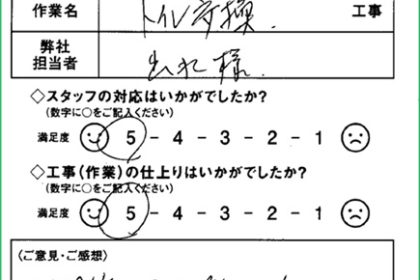 作業名 トイレ交換 工事
弊社
担当者 様
◇スタッフの対応はいかがでしたか?
(数字に○をご記入ください)
満足度 5 - 4 - 3 - 2 - 1
◇工事(作業)の仕上りはいかがでしたか?
(数字に○をご記入ください)
満足度 5 - 4 - 3 - 2 - 1
(ご意見・ご感想)